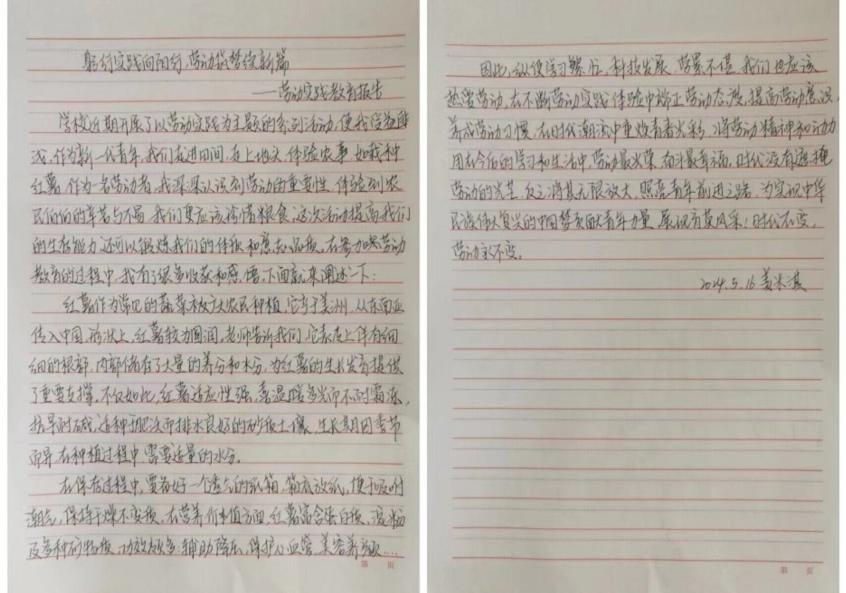 躬行实践向阳行，劳动筑梦续新篇
——劳动实践教育报告
学校近期开展了以劳动实践为主题的系列活动，使我受益匪
浅，作为新一代青年，我们走进田间，在土地头，体验农事，如栽种
红薯，作为一名劳动者，我深深认识到劳动的重要性，体验到农
民伯伯的辛苦与不易，我们更应该珍惜粮食。这次活动提高我们
的生存能力，还可以锻炼我们的体肤和意志品质，在参加此劳动
教育的过程中，我有了很多收获和感悟，下面就来阐述一下：
红薯作为常见的蔬菜被广大农民种植，它产于美洲，从东南亚
传入中国，形状上，红薯较为圆润，老师告诉我们，它表皮上伴有细
细的根部，内部储存了大量的养分和水分，为红薯的生长发育提供
了重要支撑，不仅如此，红薯适应性强，喜温暖多光而不耐霜冻，
抗旱耐碱，适种于肥沃而排水良好的砂质土壤，生长期因季节
而异，在种植过程中，需要适量的水分。
在保存过程中，要有好一个透气的纸箱，箱底放纸，便于吸附
潮气，保持干燥不变质，在营养价值方面，红薯富含蛋白质、淀粉
及多种矿物质，功效颇多：辅助降压，保护心血管，美容养颜……
第 页
因此，纵使学习繁忙，科技发展，劳累不堪，我们也应该
热爱劳动，在不断劳动实践体验中端正劳动态度，提高劳动意识，
养成劳动习惯，在时代潮流中重焕青春光彩，将劳动精神和动力
用在今后的学习和生活中，劳动最光荣，奋斗最幸福，时代没有遮掩
劳动的光芒，反之将其无限放大，照亮青年前进之路，为实现中华
民族伟大复兴的中国梦贡献青年力量，展现育英风采！时代在变，
劳动永不变。
2024.5.16 姜米淇
第 页